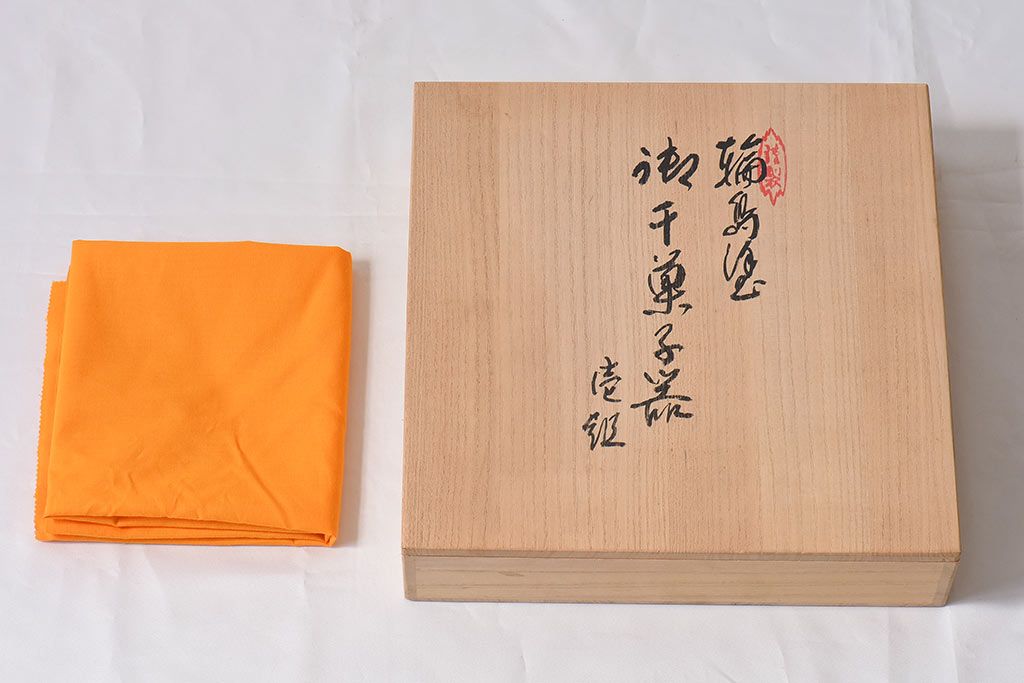 謹製
輪島塗
御干菓子器
壱組